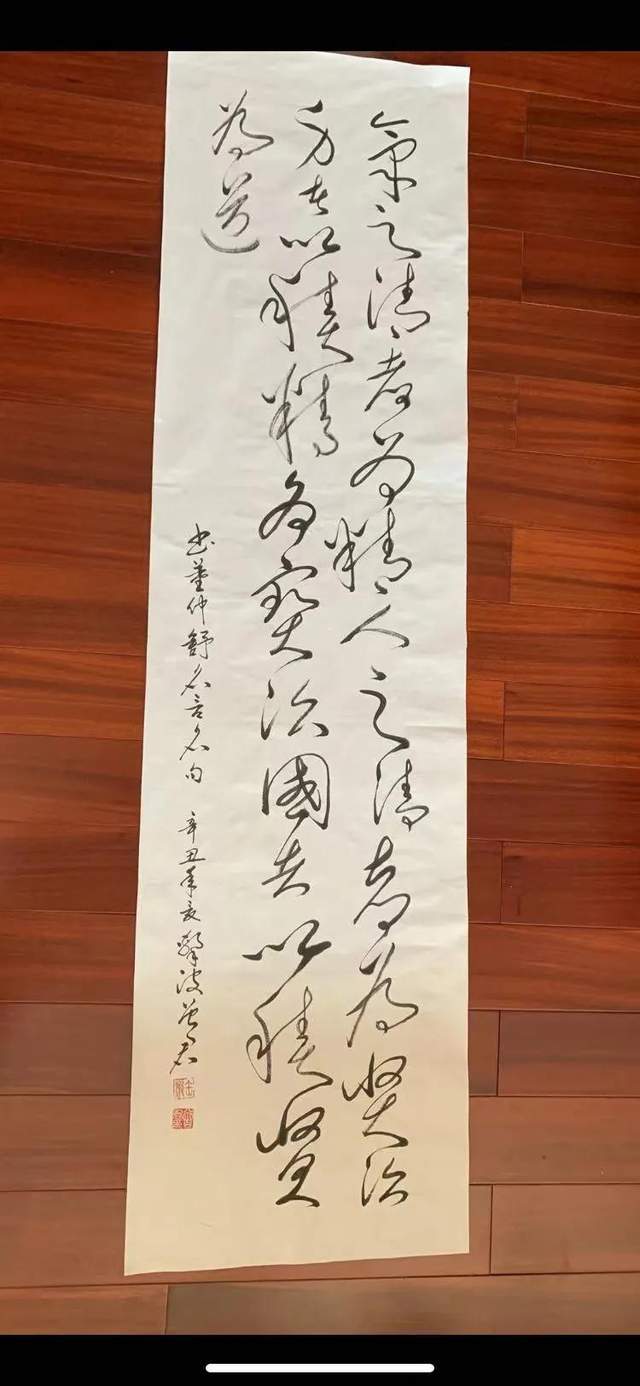 氣之清者为精人之清者為賢治
身者以積精为寶治國者以積賢
為道
书董仲舒名言名句 辛丑年夏 擎波